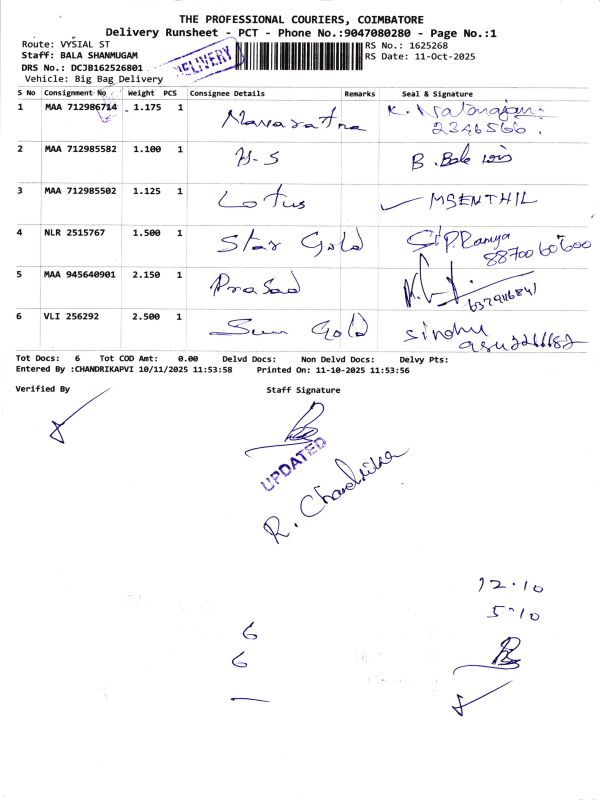 THE PROFESSIONAL COURIERS, COIMBATORE
Delivery Runsheet - PCT - Phone No.:9047080280 - Page No.:1
Route: VYSIAL ST
Staff: BALA SHANMUGAM
DRS No.: DCJB162526801
Vehicle: Big Bag Delivery
DELIVERY
RS No.: 1625268
RS Date: 11-Oct-2025
S No Consignment No Weight PCS Consignee Details Remarks Seal & Signature
1 MAA 712986714 1.175 1 Navaratna K. Natarajan
2346566.
2 MAA 712985582 1.100 1 H-S B. Bala
3 MAA 712985502 1.125 1 Lotus MSENTHIL
4 NLR 2515767 1.500 1 Star Gold P. Ramya
8870060600
5 MAA 945640901 2.150 1 Prasad
6 VLI 256292 2.500 1 Sun Gold Sindhu
Tot Docs: 6 Tot COD Amt: 0.00 Delvd Docs: Non Delvd Docs: Delvy Pts:
Entered By :CHANDRIKAPVI 10/11/2025 11:53:58 Printed On: 11-10-2025 11:53:56
Verified By Staff Signature
UPDATED
R. Chandrika
12.10
5.10
6
6